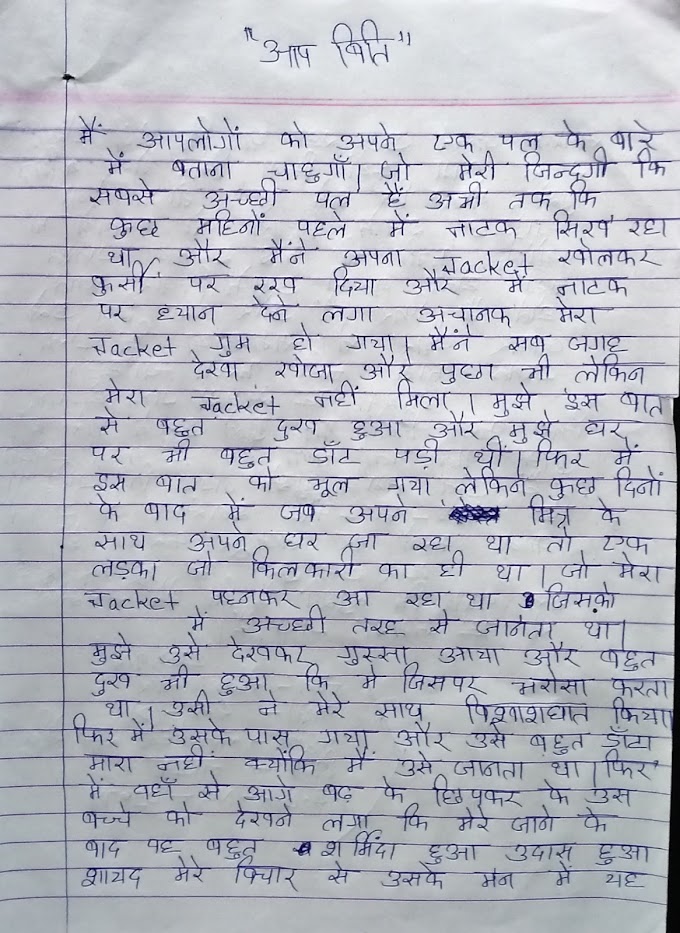 "आप बिति"
मैं आपलोगों को अपने एक पल के बारे
में बताना चाहुगाँ। जो मेरी जिन्दगी कि
सबसे अच्छी पल हैं अभी तक कि
कुछ महिनों पहले में नाटक सिख रहा
था और मैंने अपना Jacket खोलकर
कुर्सी पर रख दिया और में नाटक
पर ध्यान देने लगा अचानक मेरा
Jacket गुम हो गया। मैंने सब जगह
देखा खोजा और पुछा भी लेकिन
मेरा Jacket नहीं मिला। मुझे इस बात
से बहुत दुख हुआ और मुझे घर
पर भी बहुत डाँट पड़ी थीं। फिर में
इस बात को भूल गया लेकिन कुछ दिनों
के बाद में जब अपने मित्र के
साथ अपने घर जा रहा था तो एक
लड़का जो किलकारी का ही था। जो मेरा
Jacket पहनकर आ रहा था जिसको
में अच्छी तरह से जानता था।
मुझे उसे देखकर गुस्सा आया और बहुत
दुख भी हुआ कि मे जिसपर भरोसा करता
था। उसी ने मेरे साथ विश्वाशघात किया
फिर में उसके पास गया और उसे बहुत डाँटा
मारा नहीं क्योंकि में उसे जानता था। फिर
में वहाँ से आगे बढ़ के छिपकर के उस
बच्चे को देखने लगा कि मेरे जाने के
बाद वह बहुत शर्मिंदा हुआ उदास हुआ
शायद मेरे विचार से उसके मन में यह